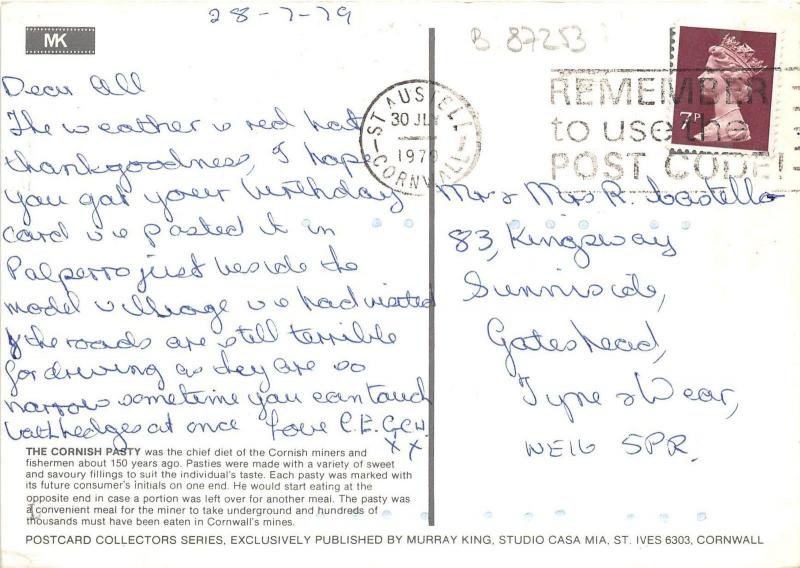 28-7-79
MK
B 87253
Dear All
The weather is red hot
thankgoodness, I hope
you got your birthday
card we posted it in
Palperro just beside the
model village we had visited
the roads are still terrible
for driving as they are so
narrow sometime you can touch
both hedges at once love C.E.G.C.W.
x x
ST AUSTELL
30 JLY
1979
CORNWALL
REMEMBER
to use the
POST CODE!
7P
Mr & Mrs R. Costello
83, Kingsway
Sunniside,
Gateshead,
Tyne & Wear,
NE16 5PR.
THE CORNISH PASTY was the chief diet of the Cornish miners and
fishermen about 150 years ago. Pasties were made with a variety of sweet
and savoury fillings to suit the individual's taste. Each pasty was marked with
its future consumer's initials on one end. He would start eating at the
opposite end in case a portion was left over for another meal. The pasty was
a convenient meal for the miner to take underground and hundreds of
thousands must have been eaten in Cornwall's mines.
POSTCARD COLLECTORS SERIES, EXCLUSIVELY PUBLISHED BY MURRAY KING, STUDIO CASA MIA, ST. IVES 6303, CORNWALL